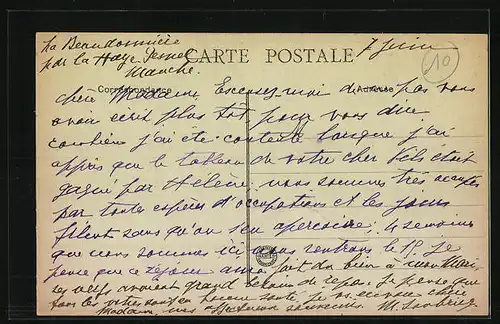 La Beaudonnière
par la Haye Pesnel
Manche.
7 Juin
10
CARTE POSTALE
Correspondance
Adresse
Chère Madame Excusez moi de ne pas vous
avoir écrit plus tôt pour vous dire
combien j'ai été contente lorsque j'ai
appris que le tableau de votre cher Fils était
gagné par Hélène. nous sommes très occupés
par toutes espèces d'occupations et les jours
filent sans qu'on s'en aperçoive. 4 semaines
que nous sommes ici nous rentrons le 1er Je
pense que ce séjour aura fait du bien à mon Mari,
ses nerfs avaient grand besoin de repos. Je pense que
tous les vôtres sont en bonne santé, je
Madame, mes affectueux souvenirs. M.